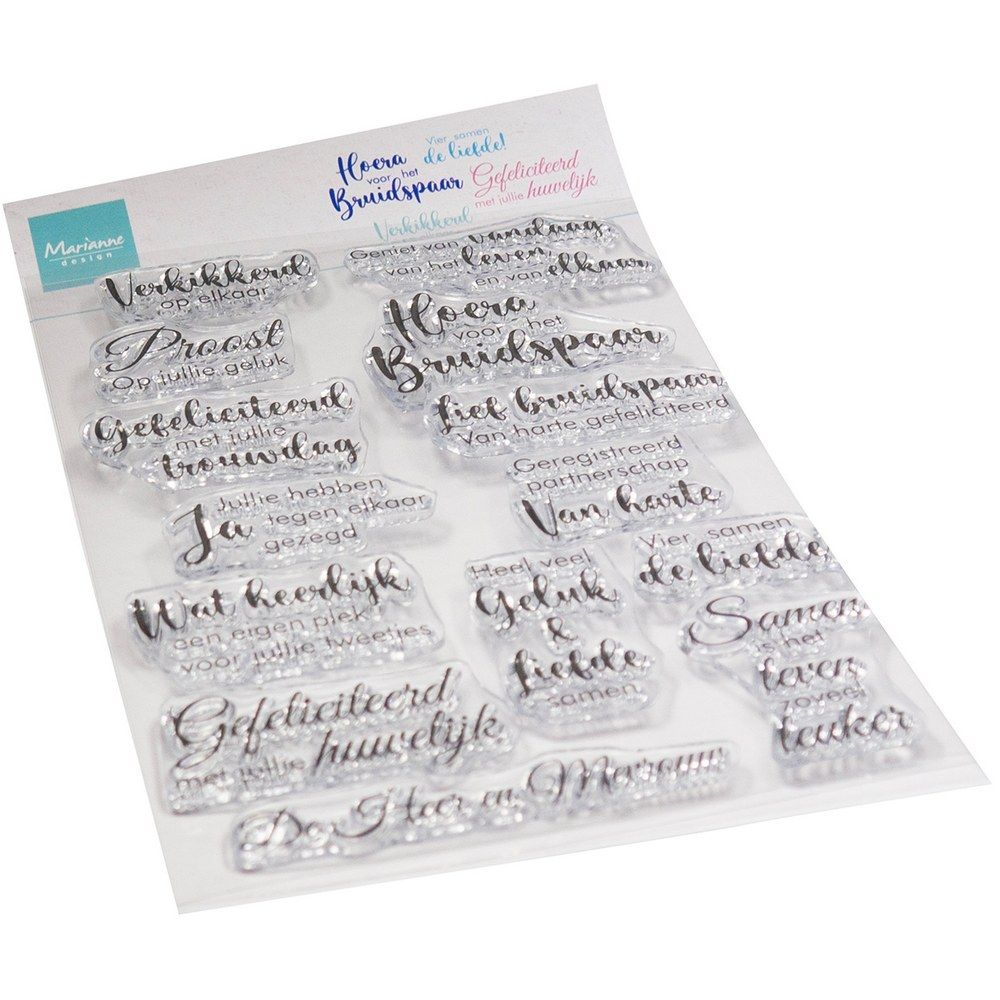 Marianne
design
Hoera
voor het
Bruidspaar
Vier samen
de liefde!
Gefeliciteerd
met jullie huwelijk
Verkikkerd
Verkikkerd
op elkaar
Geniet van vandaag,
van het leven
en van elkaar
Proost
Op jullie geluk
Hoera
voor het
Bruidspaar
Gefeliciteerd
met jullie
trouwdag
Lief bruidspaar
Van harte gefeliciteerd
Jullie hebben
Ja tegen elkaar
gezegd
Geregistreerd
partnerschap
Van harte
Wat heerlijk
een eigen plek
voor jullie tweetjes
Heel veel
Geluk
&
Liefde
samen
Vier samen
de liefde
Samen
is het
leven
zoveel
leuker
Gefeliciteerd
met jullie huwelijk
De Heer en Mevrouw